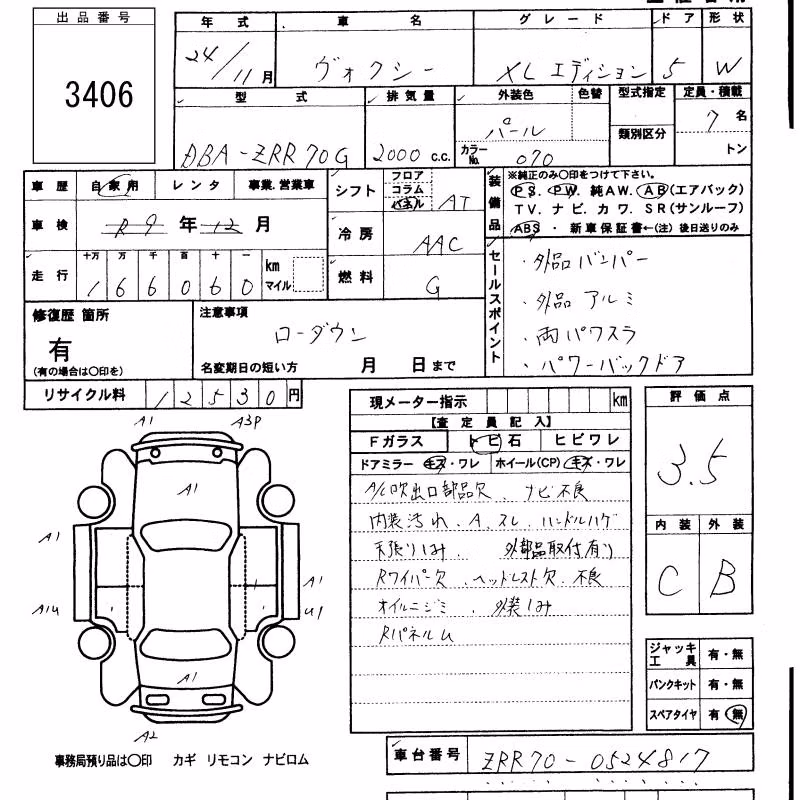 出品番号
3406
年式 車名 グレード ドア 形状
24/11月 ヴォクシー XLエディション 5 W
型式 排気量 外装色 色替 型式指定 定員・積載
パール 類別区分 7名
DBA-ZRR70G 2000 c.c. カラーNo. 070 トン
車歴 自家用 レンタ 事業.営業車
シフト フロア コラム パネル AT
装備品 ※純正のみ〇印をつけて下さい。
PS. PW. 純AW. AB(エアバック)
TV. ナビ. カワ. SR(サンルーフ)
ABS ・ 新車保証書←(注)後日送りのみ
車検 R9年12月
冷房 AAC
走行 十万 万 千 百 十 一 km マイル
166060
燃料 G
セールスポイント
・外品バンパー
・外品アルミ
・両パワスラ
・パワーバックドア
修復歴 箇所
有
(有の場合は〇印を)
注意事項
ローダウン
名変期日の短い方 月 日まで
リサイクル料 12530円
現メーター指示 km
【査定員記入】
Fガラス トビ石 ヒビワレ
ドアミラー キズ・ワレ ホイール(CP) キズ・ワレ
A/C吹出口部品欠 . ナビ不良
内装汚れ . A . スレ . ハンドルハゲ
天張りしみ . 外部品取付有り
Rワイパー欠 . ヘッドレスト欠 . 不良
オイルニジミ . 外装しみ
Rパネルム
評価点
3.5
内装 外装
C B
ジャッキ 工具 有・無
パンクキット 有・無
スペアタイヤ 有・無
A1 A3P
A1
A1
A1
A1U U1
A1
A2
事務局預り品は〇印 カギ リモコン ナビロム
車台番号 ZRR70-0524817